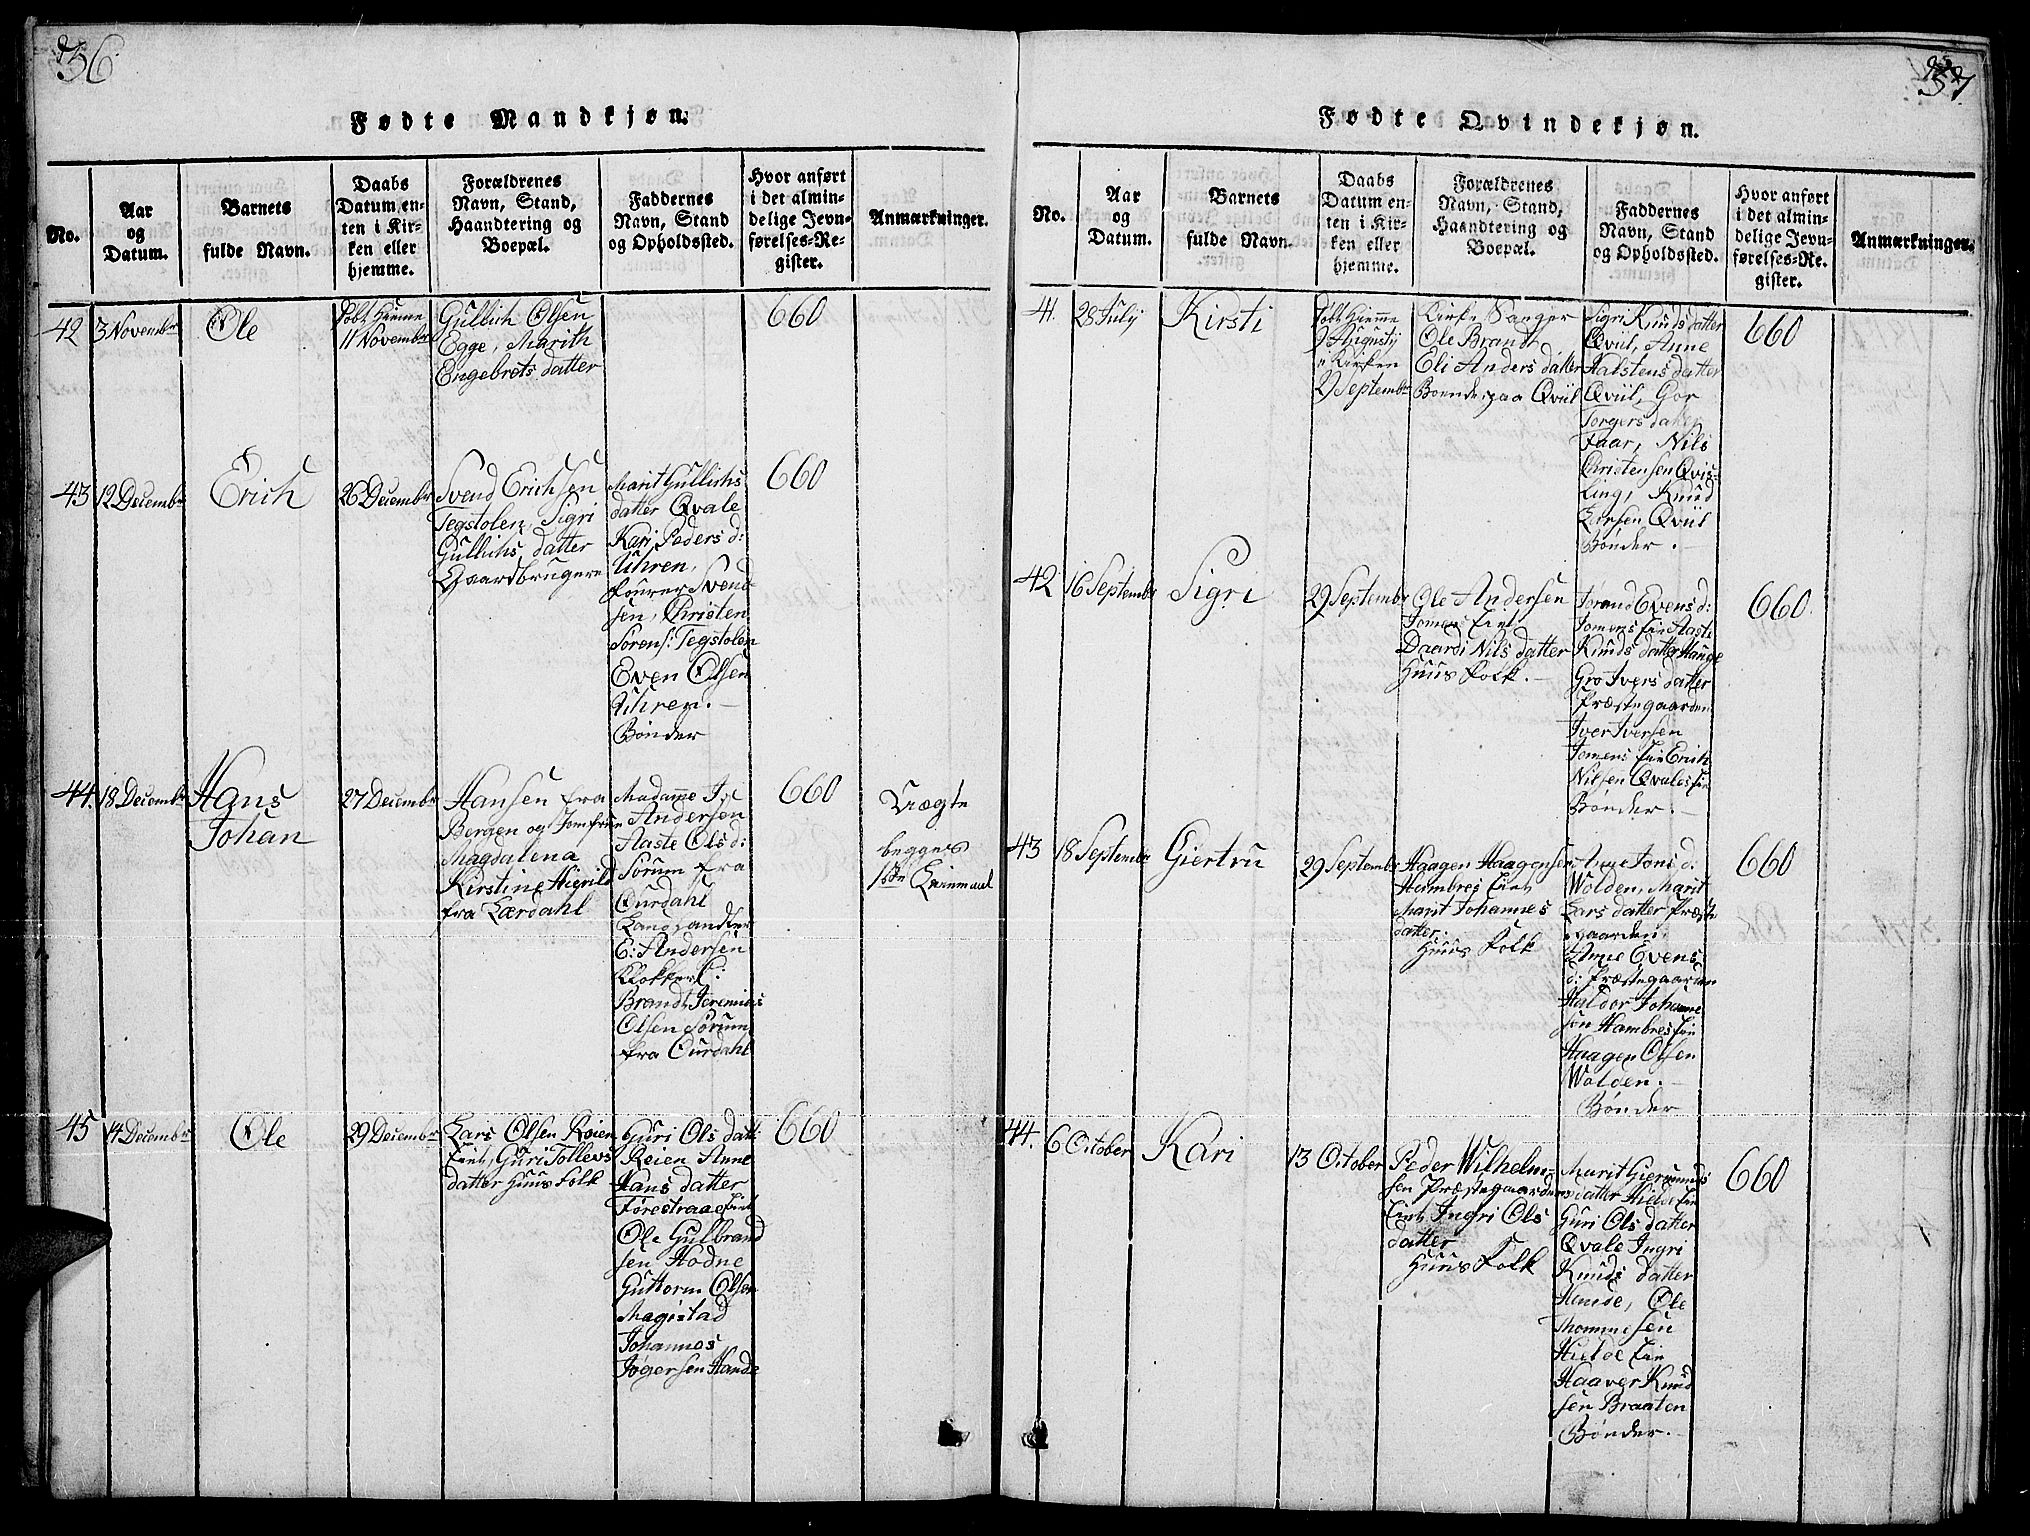 36.
Fødte Mandkjøn.
No.
Aar
og
Datum.
Barnets
fulde Navn.
Daabs
Datum en-
ten i Kir-
ken eller
hjemme.
Forældrenes
Navn, Stand,
Haandtering og
Boepæl.
Faddernes
Navn, Stand
og Opholdssted.
Hvor anført
i det almin-
delige Jevn-
førelses-Re-
gister.
Anmærkninger.
42
3 Novembr
Ole
Døbt Hiemme
11 Novembr
Gullich Olsen
Egge, Marith
Engebrets datter
660
43
12 Decembr
Erich
26 Decembr
Svend Erichsen
Tegstolen, Sigri
Gullichs datter
Gaardbrugere
Marit Gullichs
datter Qvale
Kari Peders d:
Uhren,
Fourer Svend
sen, Christen
Sørens: Tegstolen
Even Olsen
Uhren.
Bønder
660
44.
18 Decembr
Hans
Johan
27 Decembr
Hansen fra
Bergen og Jomfrue
Magdalena
Kirstine
fra Lærdahl
Madame J:
Andersen
Aaste Ols d:
Sørum fra
Ourdahl
E: Andersen
Klokker
Brandt, Jeremias
Olsen Sørum
fra Ourdahl
660
Uægte
begges
1ste Leiermaal
45
14 Decembr
Ole
29 Decembr
Lars Olsen Reien
Eiet, Guri Tollevs
datter Huus Folk
Guri Ols datt:
Reien Anne
Hans datter
Førestraae Eiet
Ole Gulbrand
sen Hodne
Guttorm Olsen
Magistad
Johannes
Jøgersen Hande
660
37.
Fødte Qvindekjøn.
No.
Aar
og
Datum.
Barnets
fulde Navn.
Daabs
Datum en-
ten i Kir-
ken eller
hjemme.
Forældrenes
Navn, Stand,
Haandtering og
Boepæl.
Faddernes
Navn, Stand
og Opholdssted.
Hvor anført
i det almin-
delige Jevn-
førelses-Re-
gister.
Anmærkninger.
41.
28 July
Kirsti
Døbt Hiemme
Augustij
i Kirken
29 Septembr
Kirke Sanger
Ole Brandt,
Eli Anders datter
Boende paa Qviil
Sigri Knuds datter
Qviil, Anne
Halstens datter
Qviil, Gor
Torgers datter
Faar, Nils
Christensen Qvis-
ling, Knud
Larsen Qviil
Bønder.
660
42
16 Septembr
Sigri
29 Septembr
Ole Andersen
Jomens Eiet
Daardi Nils datter
Huus Folk.
Jorand Evens d:
Jomens Eie Aaste
Knuds datter Hauge
Gro Ivers datter
Præstegaarden
Iver Iversen
Jomens Eie Erich
Nilsen Qvales Eie
Bønder.
660.
43
18 Septembr
Giertru
29 Septembr
Haagen Haagensen
Hermbres Eiet
Marit Johannes
datter.
Huus Folk
Anne Jons d:
Wolden, Marit
Lars datter Præste
gaarden.
Anne Evens
d: Præstegaarden
Haldor Johanne
son Hambres Eie
Haagen Olsen
Wolden.
Bønder
660
44.
6 October
Kari
13 October
Peder Wilhelm-
sen Præstegaardens
Eiet, Ingri Ols
datter
Huus Folk
Marit Giermunds
datter Hielde Eie
Guri Ols datter
Qvale Ingri
Knuds datter
Hande, Ole
Thommesen
Hielde Eie
Haaver Knud
sen Braaten
Bønder.
660